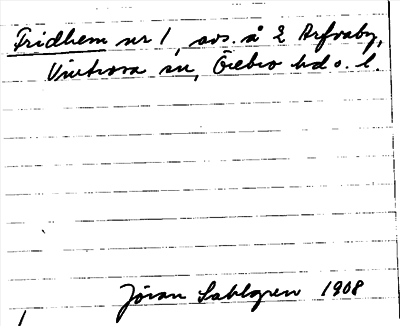 Fridhem nr 1, avs. å Ö Arfvaby,
Vintrosa sn, Örebro hd o. l.
Jöran Sahlgren 1908
1